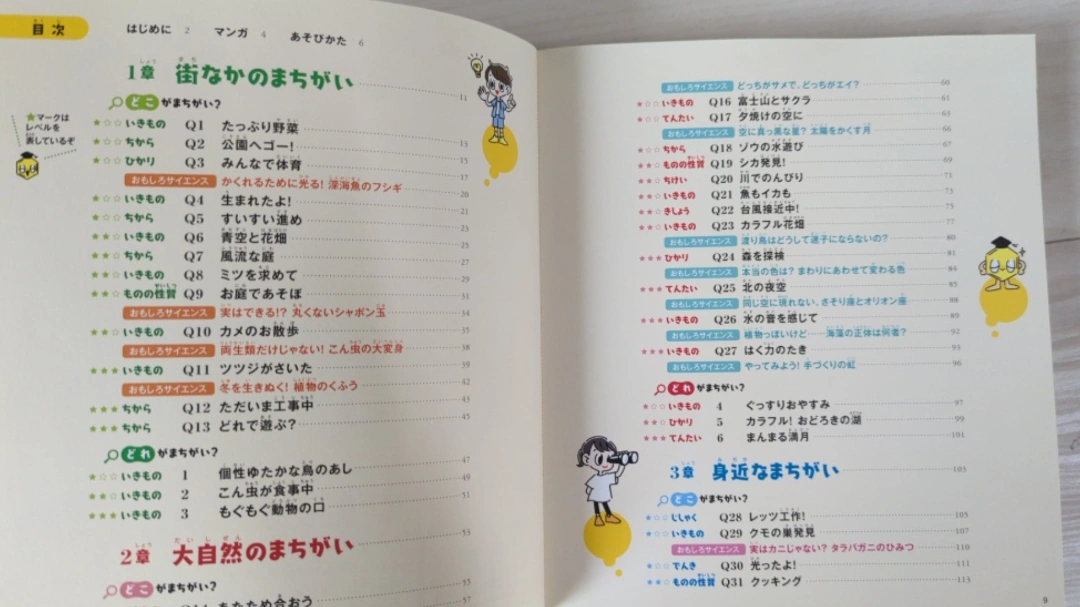 目次
はじめに 2 マンガ 4 あそびかた 6
1章 街なかのまちがい 11
どこがまちがい?
★マークは
レベルを
表しているぞ
★☆☆ いきもの Q1 たっぷり野菜 13
★☆☆ ちから Q2 公園へゴー! 15
★☆☆ ひかり Q3 みんなで体育 17
おもしろサイエンス かくれるために光る! 深海魚のフシギ 20
★☆☆ いきもの Q4 生まれたよ! 21
★☆☆ ちから Q5 すいすい進め 23
★★☆ いきもの Q6 青空と花畑 25
★★☆ ちから Q7 風流な庭 27
★★☆ いきもの Q8 ミツを求めて 29
★★☆ ものの性質 Q9 お庭であそぼ 31
おもしろサイエンス 実はできる!? 丸くないシャボン玉 34
★★☆ いきもの Q10 カメのお散歩 35
おもしろサイエンス 両生類だけじゃない! こん虫の大変身 38
★★★ いきもの Q11 ツツジがさいた 39
おもしろサイエンス 冬を生きぬく! 植物のくふう 42
★★★ ちから Q12 ただいま工事中 43
★★★ ちから Q13 どれで遊ぶ? 45
どれがまちがい?
★☆☆ いきもの 1 個性ゆたかな鳥のあし 47
★★☆ いきもの 2 こん虫が食事中 49
★★★ いきもの 3 もぐもぐ動物の口 51
2章 大自然のまちがい 53
どこがまちがい?
あたため合おう 57
おもしろサイエンス どっちがサメで、どっちがエイ? 60
★☆☆ いきもの Q16 富士山とサクラ 61
★☆☆ てんたい Q17 夕焼けの空に 63
おもしろサイエンス 空に真っ黒な星? 太陽をかくす月 66
★☆☆ ちから Q18 ゾウの水遊び 67
★★☆ ものの性質 Q19 シカ発見! 69
★★☆ ちけい Q20 川でのんびり 71
★★☆ いきもの Q21 魚もイカも 73
★★☆ きしょう Q22 台風接近中! 75
★★☆ いきもの Q23 カラフル花畑 77
おもしろサイエンス 渡り鳥はどうして迷子にならないの? 80
★★★ ひかり Q24 森を探検 81
おもしろサイエンス 本当の色は? まわりにあわせて変わる色 84
★★★ てんたい Q25 北の夜空 85
おもしろサイエンス 同じ空に現れない、さそり座とオリオン座 88
★★★ いきもの Q26 水の音を感じて 89
おもしろサイエンス 植物っぽいけど……海藻の正体は何者? 92
★★★ いきもの Q27 はく力のたき 93
おもしろサイエンス やってみよう! 手づくりの虹 96
どれがまちがい?
★☆☆ いきもの 4 ぐっすりおやすみ 97
★★☆ ひかり 5 カラフル! おどろきの湖 99
★★★ てんたい 6 まんまる満月 101
3章 身近なまちがい 103
どこがまちがい?
★☆☆ じしゃく Q28 レッツ工作! 105
★☆☆ いきもの Q29 クモの巣発見 107
おもしろサイエンス 実はカニじゃない? タラバガニのひみつ 110
★☆☆ でんき Q30 光ったよ! 111
★★☆ ものの性質 Q31 クッキング 113
9